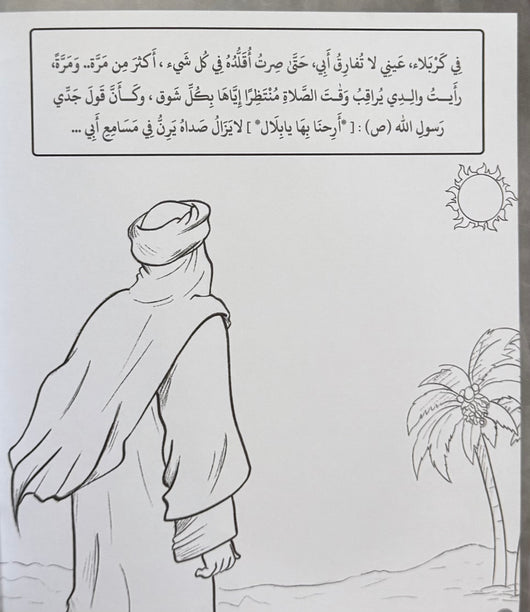 فِي كَرْبَلاء، عَينِي لا تُفارِقُ أَبِي، حَتَّىٰ صِرتُ أُقَلِّدُهُ فِي كُل شَيء ، أَكثرَ مِن مَرَّة.. وَمَرَّة،
رأَيــتُ والِـدِي يُراقِبُ وَقْـتَ الصَّلاةِ مُنْتَظِرًا إِيَّاهَا بِكُلِّ شَوق ، وكَــأَنَّ قَولَ جَدِّي
رَسولِ الله (ص) : [ *أَرِحنَا بِهَا يابِلَال* ] لايَزَالُ صَداهُ يَرِنُّ فِي مَسَامِعِ أَبِي ...